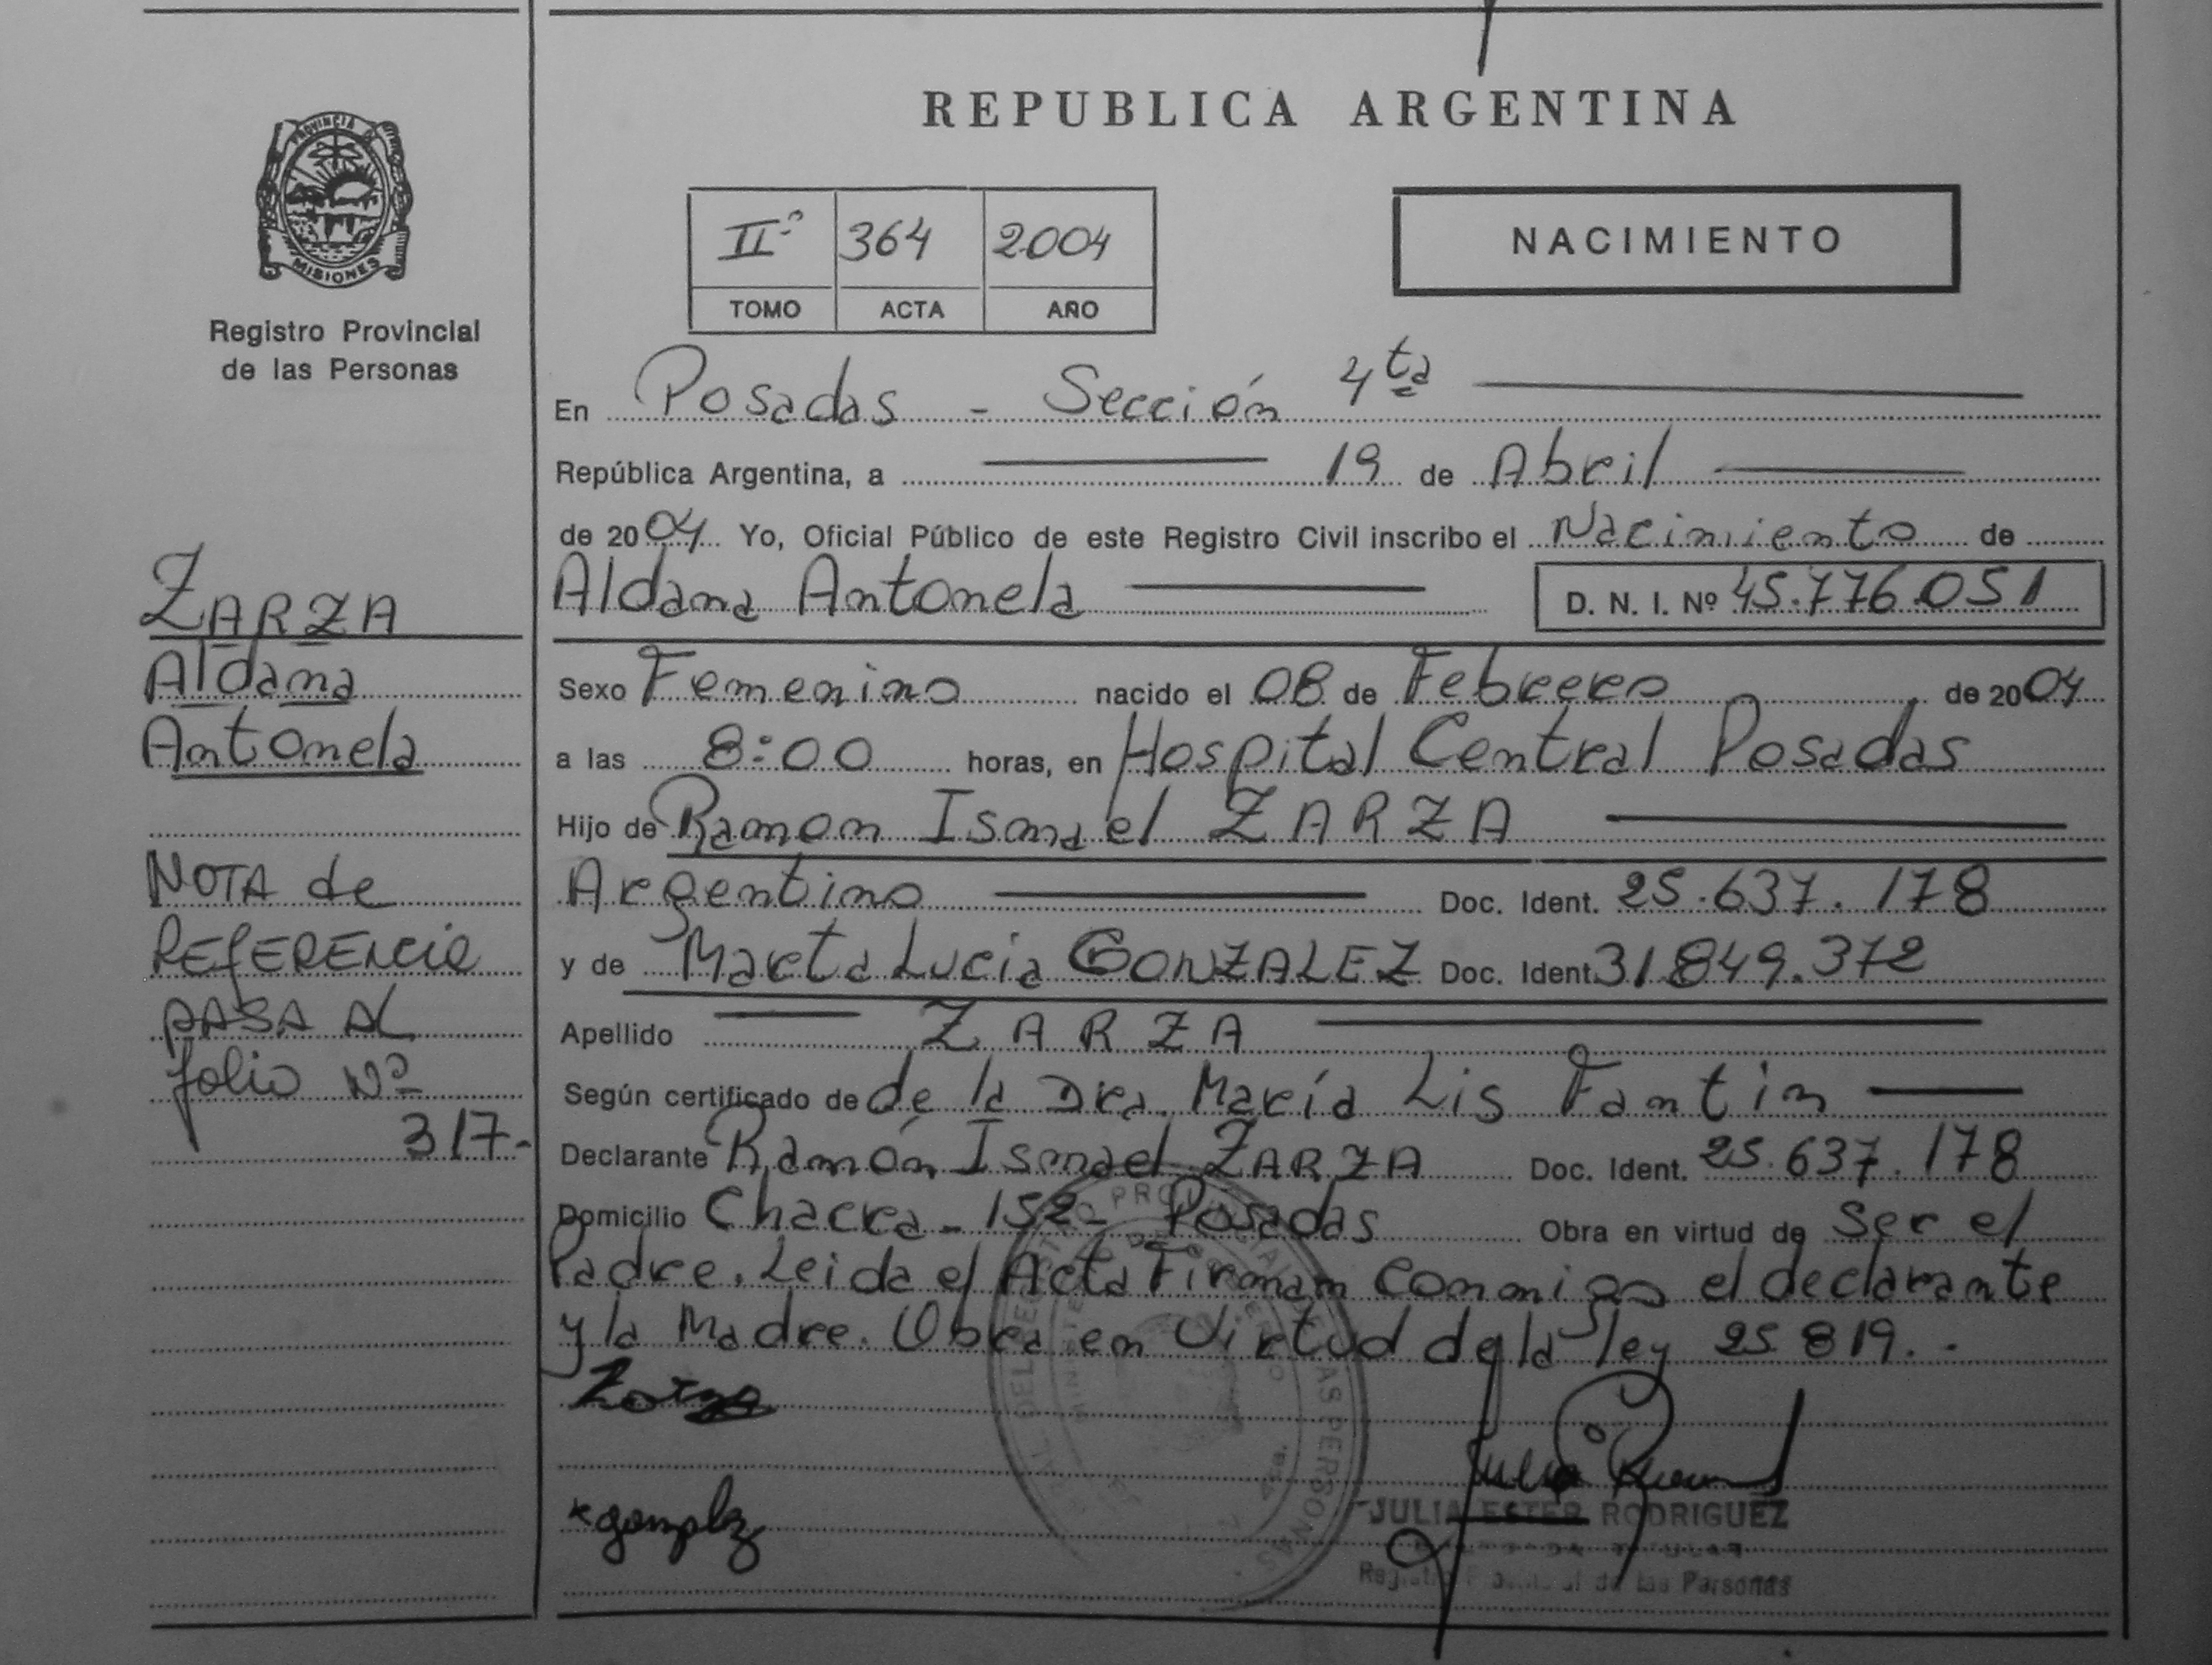 PROVINCIA DE
MISIONES
Registro Provincial
de las Personas
ZARZA
Aldana
Antonela
NOTA de
REFERENCIA
PASA AL
folio Nº
317.-
REPUBLICA ARGENTINA
IIº 364 2004
TOMO ACTA AÑO
NACIMIENTO
En Posadas - Sección 4ta
República Argentina, a 19 de Abril
de 2004 Yo, Oficial Público de este Registro Civil inscribo el Nacimiento de
Aldana Antonela D. N. I. Nº 45.776.051
Sexo Femenino nacido el 08 de Febrero de 2004
a las 8:00 horas, en Hospital Central Posadas
Hijo de Ramon Ismael ZARZA
Argentino Doc. Ident. 25.637.178
y de Marta Lucia GONZALEZ Doc. Ident. 31.849.372
Apellido ZARZA
Según certificado de de la Dra. María Lis Fantin
Declarante Ramón Ismael ZARZA Doc. Ident. 25.637.178
Domicilio Chacra - 152 - Posadas Obra en virtud de ser el
Padre. Leida el Acta Firman conmigo el declarante
y la Madre. Obra en Virtud de la ley 25.819.-
JULIA ESTER RODRIGUEZ
de las Personas